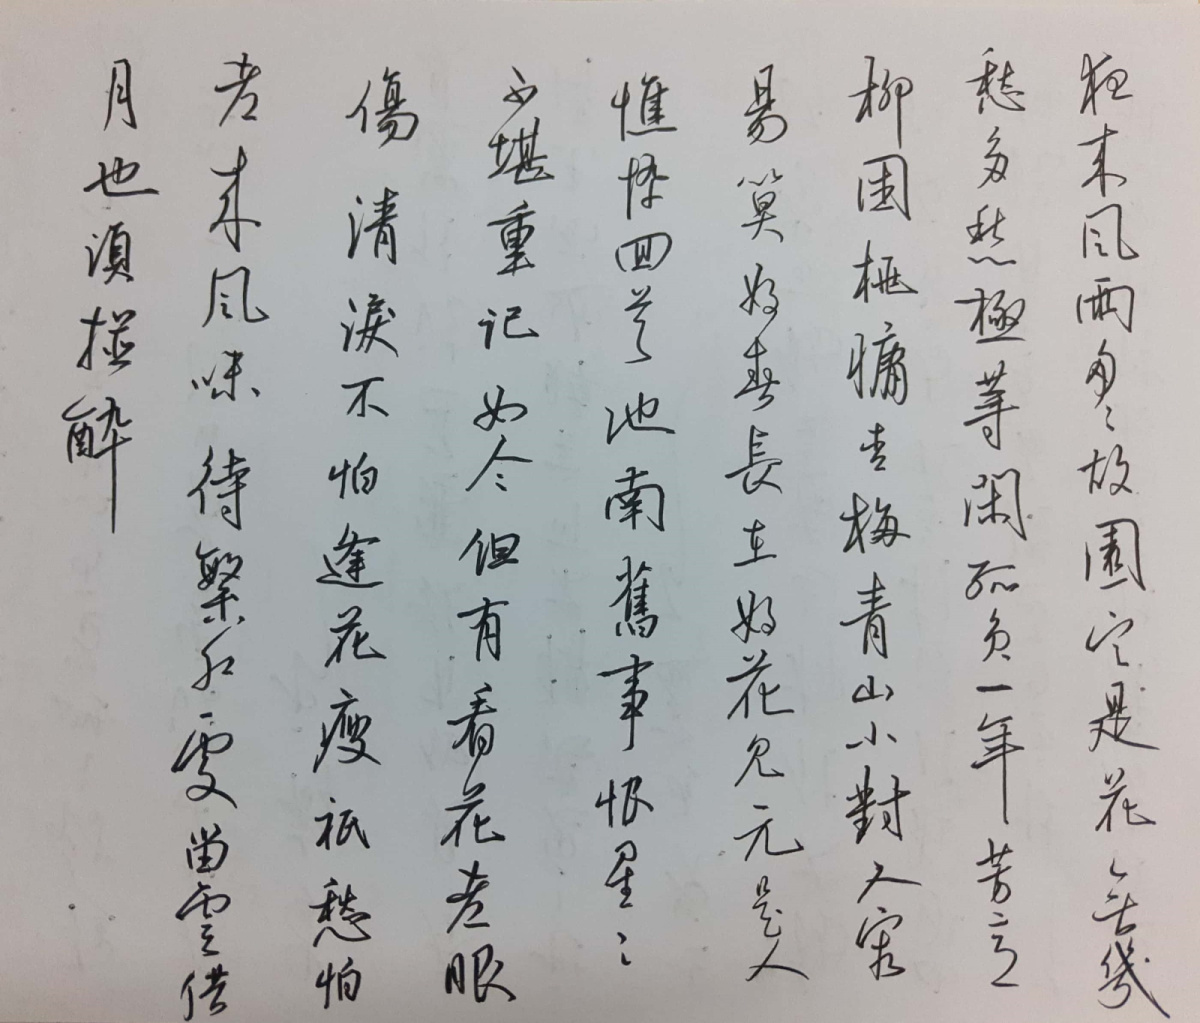 夜来風雨匆匆故園定是花無幾
愁多愁極等閑孤負一年芳意
柳困桃慵杏梅青山小對人容
易算好春長在好花見元是人
憔悴回首池南舊事恨星々
不堪重記如今但有看花老眼
傷清淚不怕逢花瘦祇愁怕
老来風味待繁紅處留雲借
月也須拚醉